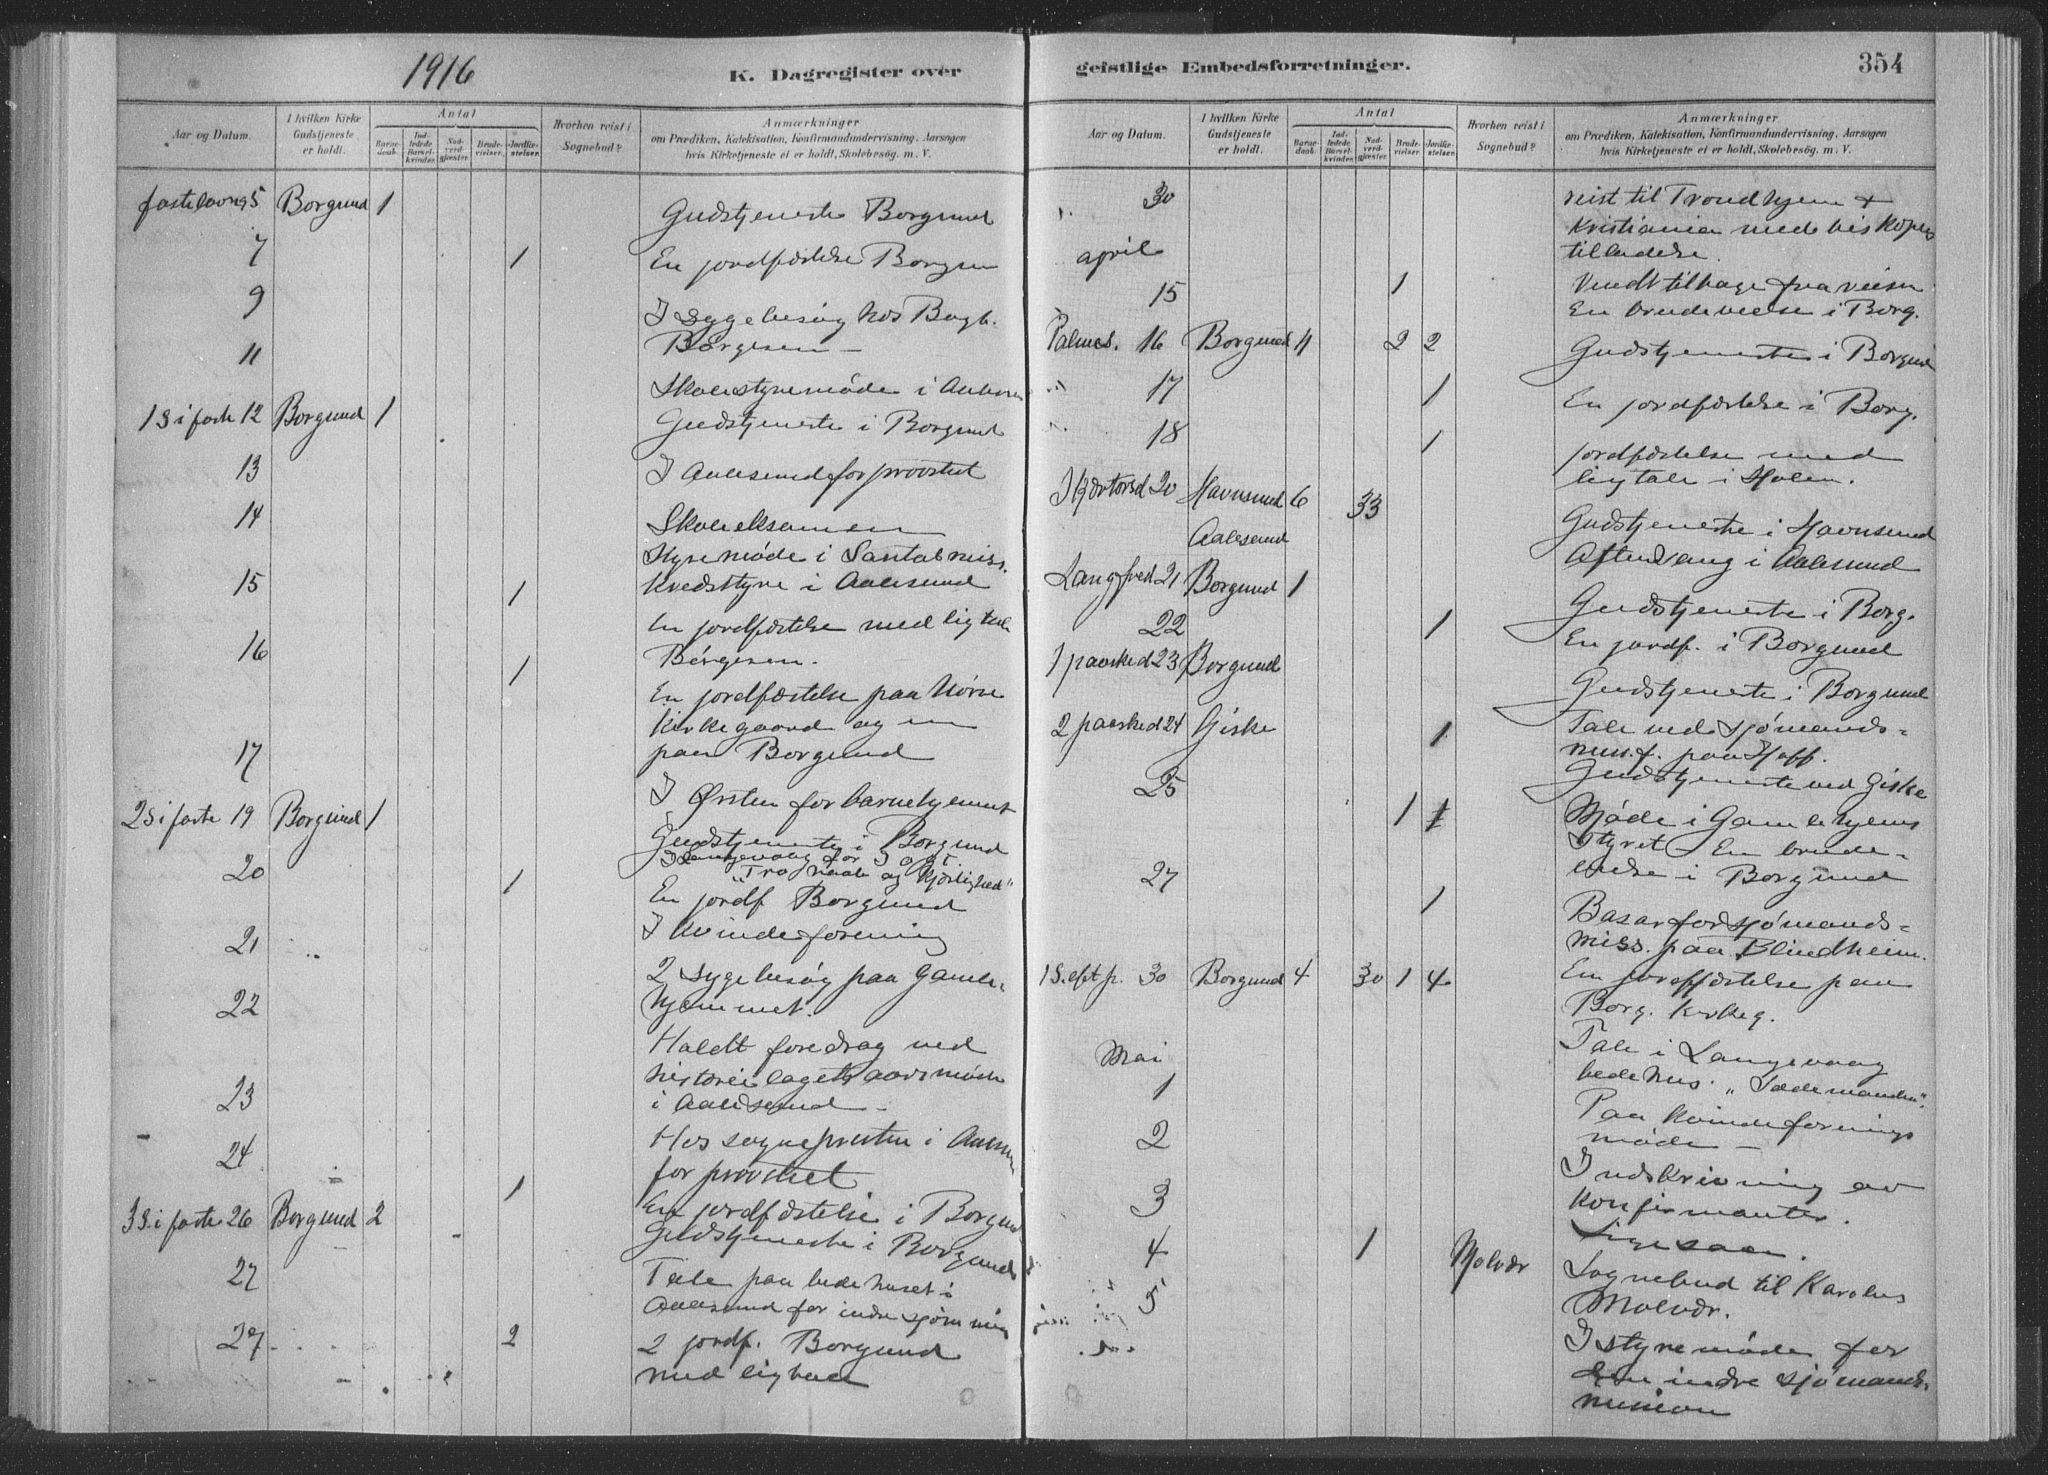 1916
K. Dagregister over
Aar og Datum.
I hvilken Kirke Gudstjeneste er holdt.
Antal
Barnedaab.
Indledede Barselkvinder.
Nadverdgjester.
Brudevielser.
Jordfæstelser.
Hvorhen reist i Sognebud?
Anmærkninger
om Prædiken, Katekisation, Konfirmandundervisning. Aarsagen
hvis Kirketjeneste ei er holdt, Skolebesög. m. V.
fastelavns 5 Borgund 1
Gudstjeneste Borgund
7 1
En jordfæstelse Borgun
9
I sygebesøg hos Bagb.
Børgesen
11
Skolestyremøde i
1 S i faste 12 Borgund 1
Gudstjeneste i Borgund
13
I Aalesund for provstiet
14
Skoleeksamen
Styremøde i Santalmiss.
Kredsstyre i Aalesund
15 1
En jordfæstelse med ligtale
Børgesen.
16 1
En jordfæstelse paa Nørve
Kirkegaard og en
paa Borgund
17
I Ørsten for barnehjemmet
2 S i faste 19 Borgund 1
Gudstjeneste i Borgund
I Langevaag for I.O.G.T.
"Tro haab og Kjærlighed"
20 1
En jordf Borgund
I Kvindeforening
21
2 sygebesøg paa Gamle-
hjemmet.
22
Holdt foredrag ved
historielagets aarsmøde
i Aalesund
23
Hos sognepresten i
for provstiet
24 1
En jordfæstelse i Borgund
3 S. i faste 26 Borgund 2
Gudstjeneste i Borgund
27
Tale paa bedehuset i
Aalesund for indre sjøm mis
27 2
2 jordf. Borgund
med ligtale
geistlige Embedsforretninger.
354
Aar og Datum.
I hvilken Kirke Gudstjeneste er holdt.
Antal
Barnedaab.
Indledede Barselkvinder.
Nadverdgjester.
Brudevielser.
Jordfæstelser.
Hvorhen reist i Sognebud?
Anmærkninger
om Prædiken, Katekisation, Konfirmandundervisning, Aarsagen
hvis Kirketjeneste ei er holdt, Skolebesög. m. V.
30
reist til Trondhjem &
Kristiania med biskopens
tilladelse.
april
15 1
Vendt tilbage fra reisen
En brudevielse i Borg.
Palmes. 16 Borgund 11 2 2
Gudstjeneste i Borgund
17 1
En jordfæstelse i Borg.
18 1
jordfæstelse med
ligtale i Holen.
Skjærtorsd 20 Havnsund 6 33
Aalesund
Gudstjeneste i Havnsund
Aftensang i Aalesund
Langfred 21 Borgund 1
Gudstjeneste i Borg.
22 1
En jordf. i Borgund
1 paasked 23 Borgund
Gudstjeneste i Borgund
Tale ved sjømands-
miss.f. paa Hoff.
2 paasked 24 Giske 1
Gudstjeneste ved Giske
25 1 1
Møde i Gamlehjems
styret En brude-
vielse i Borgund
27 1
Basar for sjømands-
miss. paa Blindheim.
En jordfæstelse paa
Borg. kirkeg.
1 S. eft p. 30 Borgund 4 30 1 4
Tale i Langevaag
bedehus. "Sædemanden".
Mai
1
Paa Kvindeforenings
møde
2
Indskrivning av
Konfirmanter.
3
Ligesaa.
4 1 Molvær
Sognebud til Karolus
Molvær.
5
I styremøde for
den indre sjømands-
mission